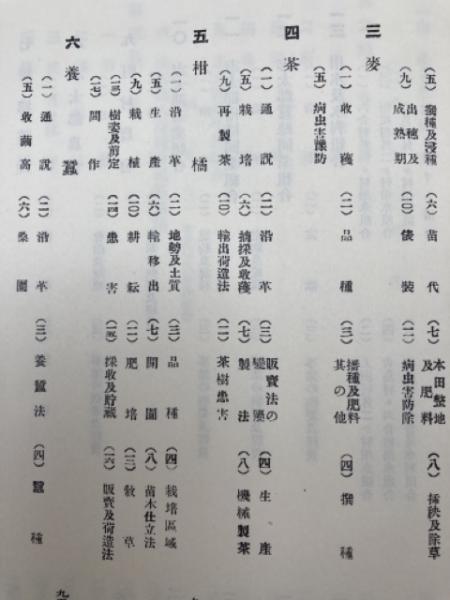 (五) 撰種及浸種 (六) 苗代 (七) 本田整地及肥料 (八) 挿秧及除草
(九) 出穂及成熟期 (一〇) 俵装 (一一) 病虫害防除
三 麥
(一) 收穫 (二) 品種 (三) 播種及肥料其の他 (四) 撰種
(五) 病虫害豫防
四 茶
(一) 通説 (二) 沿革 (三) 販賣法の變遷 (四) 生產
(五) 栽培 (六) 摘採及收穫 (七) 製法 (八) 機械製茶
(九) 再製茶 (一〇) 輸出荷造法 (一一) 茶樹患害
五 柑橘
(一) 沿革 (二) 地勢及土質 (三) 品種 (四) 栽培區域
(五) 生產 (六) 輸移出 (七) 開園 (八) 苗木仕立法
(九) 栽植 (一〇) 耕耘 (一一) 肥培 (一二) 敷草
(一三) 樹姿及剪定 (一四) 患害 (一五) 採收及貯藏 (一六) 販賣及荷造法
(一七) 間作
六 養蠶
(一) 通説 (二) 沿革 (三) 養蠶法 (四) 蠶種
(五) 收繭高 (六) 桑園